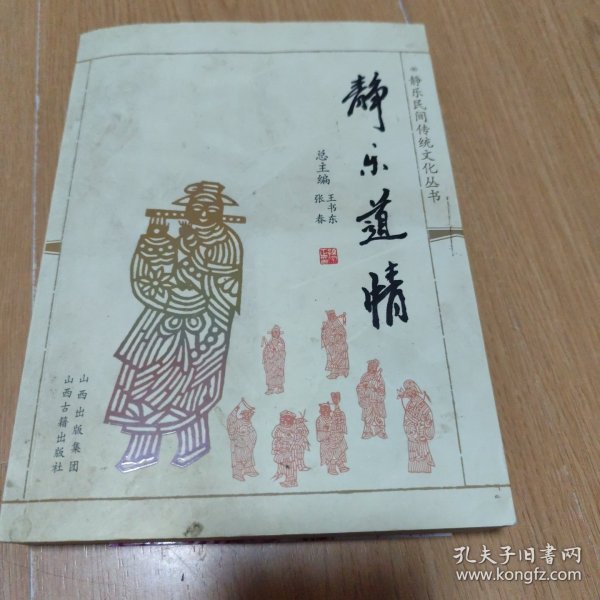 静乐民间传统文化丛书
静乐道情
总主编
王书东
张春
山西出版集团
山西古籍出版社
孔夫子旧书网
www.kongfz.com